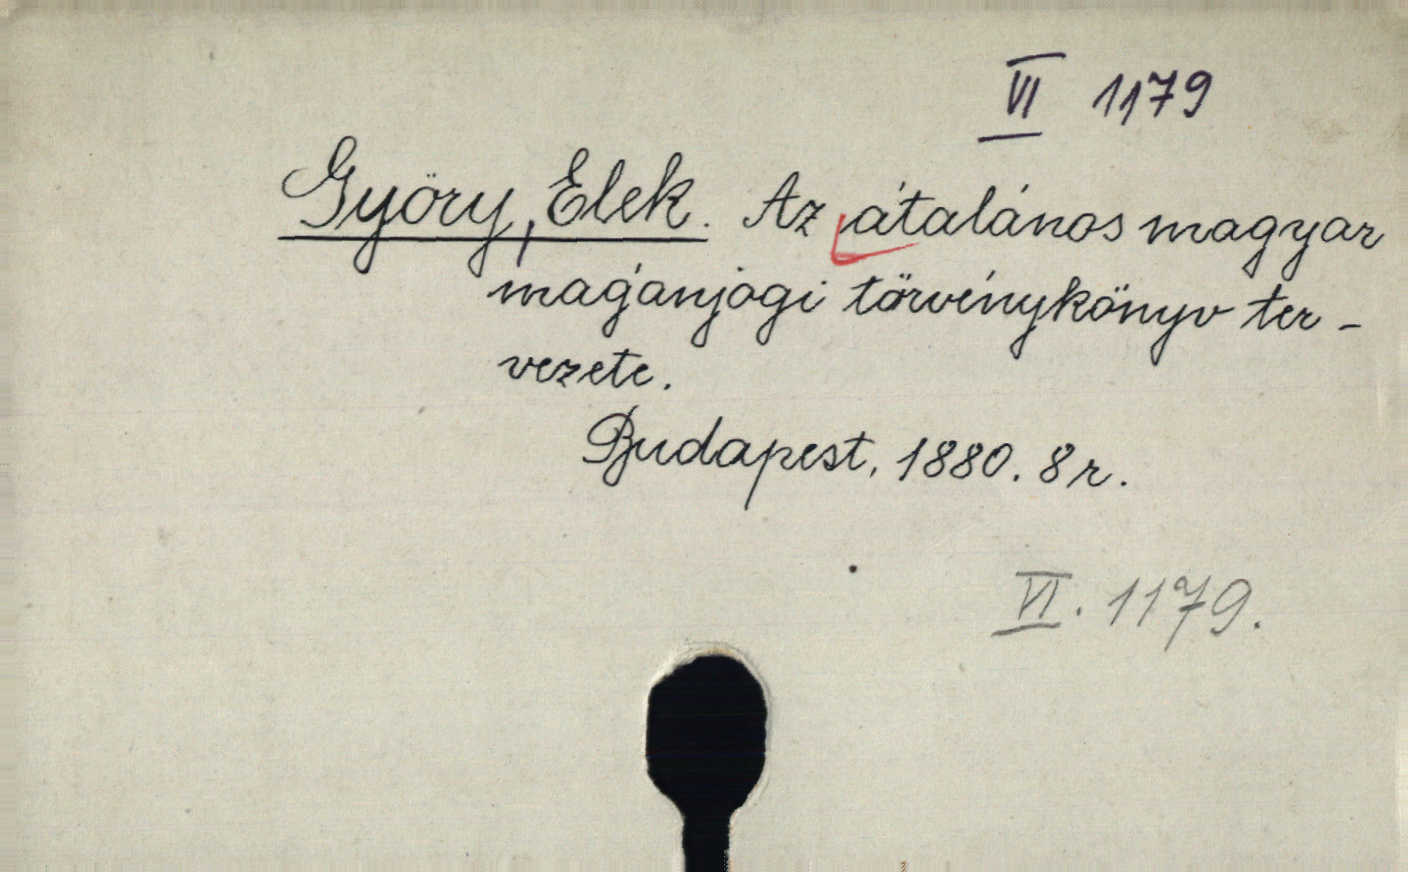 VI 1179
Györy, Elek. Az átalános magyar
magánjogi törvénykönyv ter-
vezete.
Budapest, 1880. 8r.
VI. 1179.